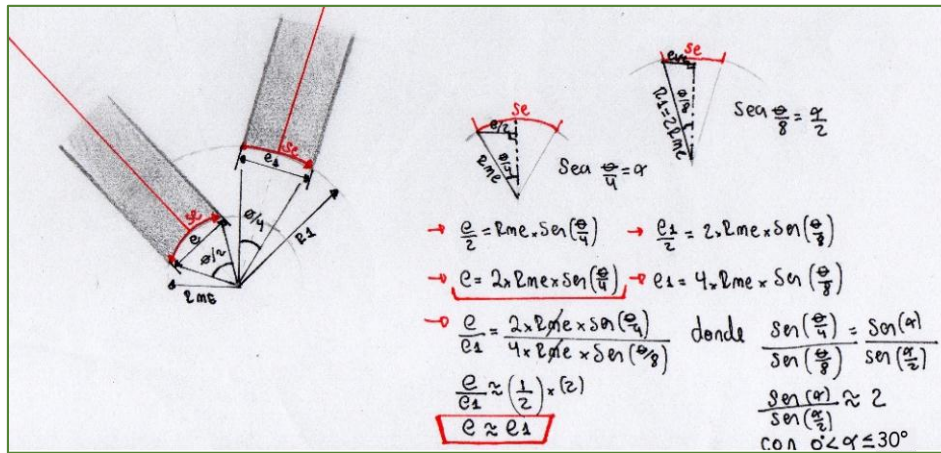 Se
e1
Se
e
θ/4
R1
θ/2
Rme
Se
e/2
Rme
θ/4
Sea θ/4 = α
Se
R1=2Rme
θ/8
Sea θ/8 = α/2
→ e/2 = Rme × Sen(θ/4) → e1/2 = 2 × Rme × Sen(θ/8)
→ e = 2 × Rme × Sen(θ/4) → e1 = 4 × Rme × Sen(θ/8)
→ e/e1 = 2 × Rme × Sen(θ/4) / 4 × Rme × Sen(θ/8) donde Sen(θ/4)/Sen(θ/8) = Sen(α)/Sen(α/2)
e/e1 ≈ (1/2) × (2)
Sen(α)/Sen(α/2) ≈ 2
e ≈ e1
con 0°<α≤30°